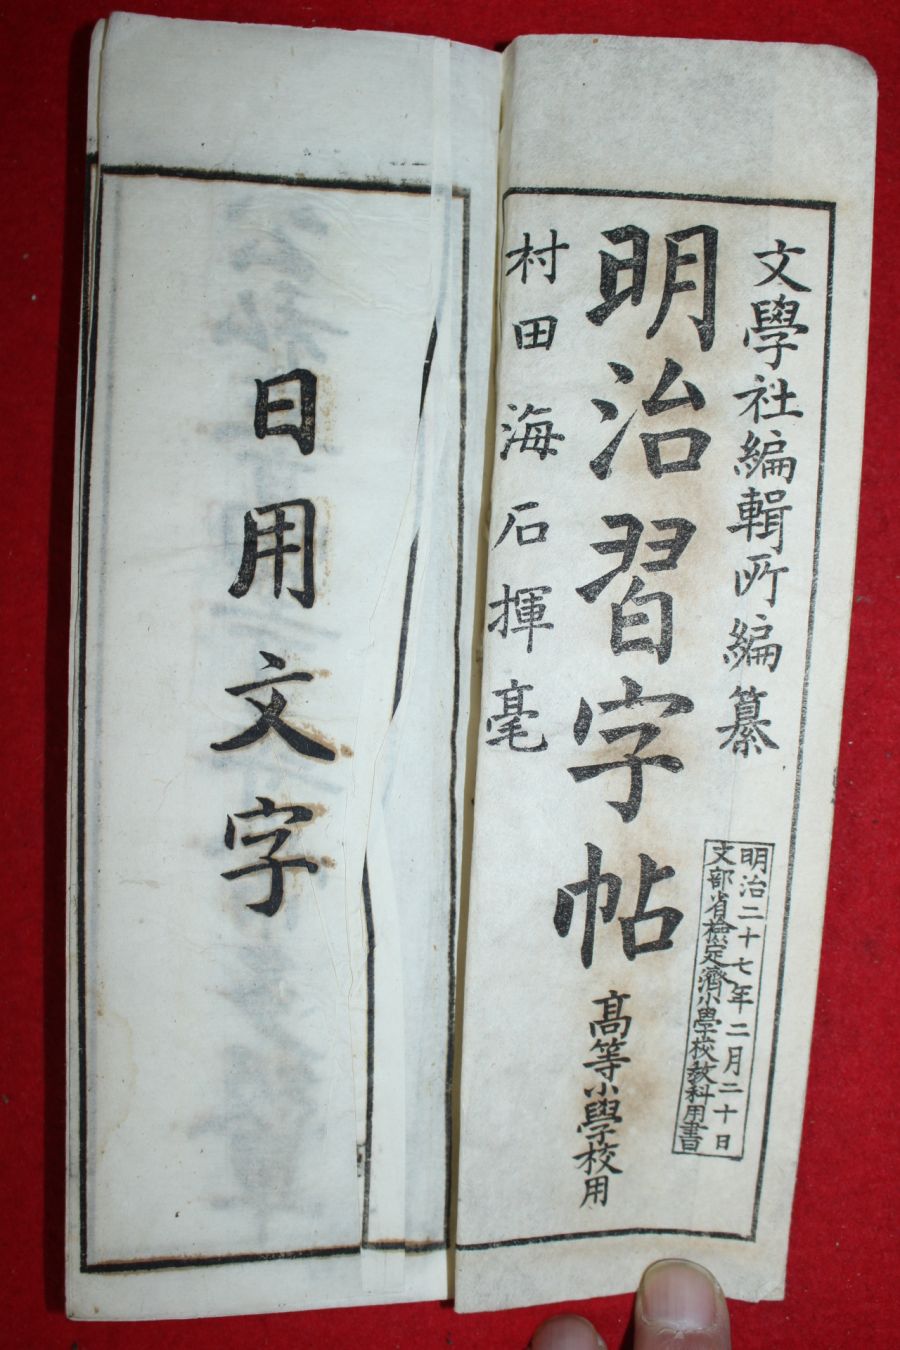 文學社編輯所編纂
明治二十七年二月二十日
文部省檢定濟小學校教科用書
明治習字帖
高等小學校用
村田海石揮毫
日用文字